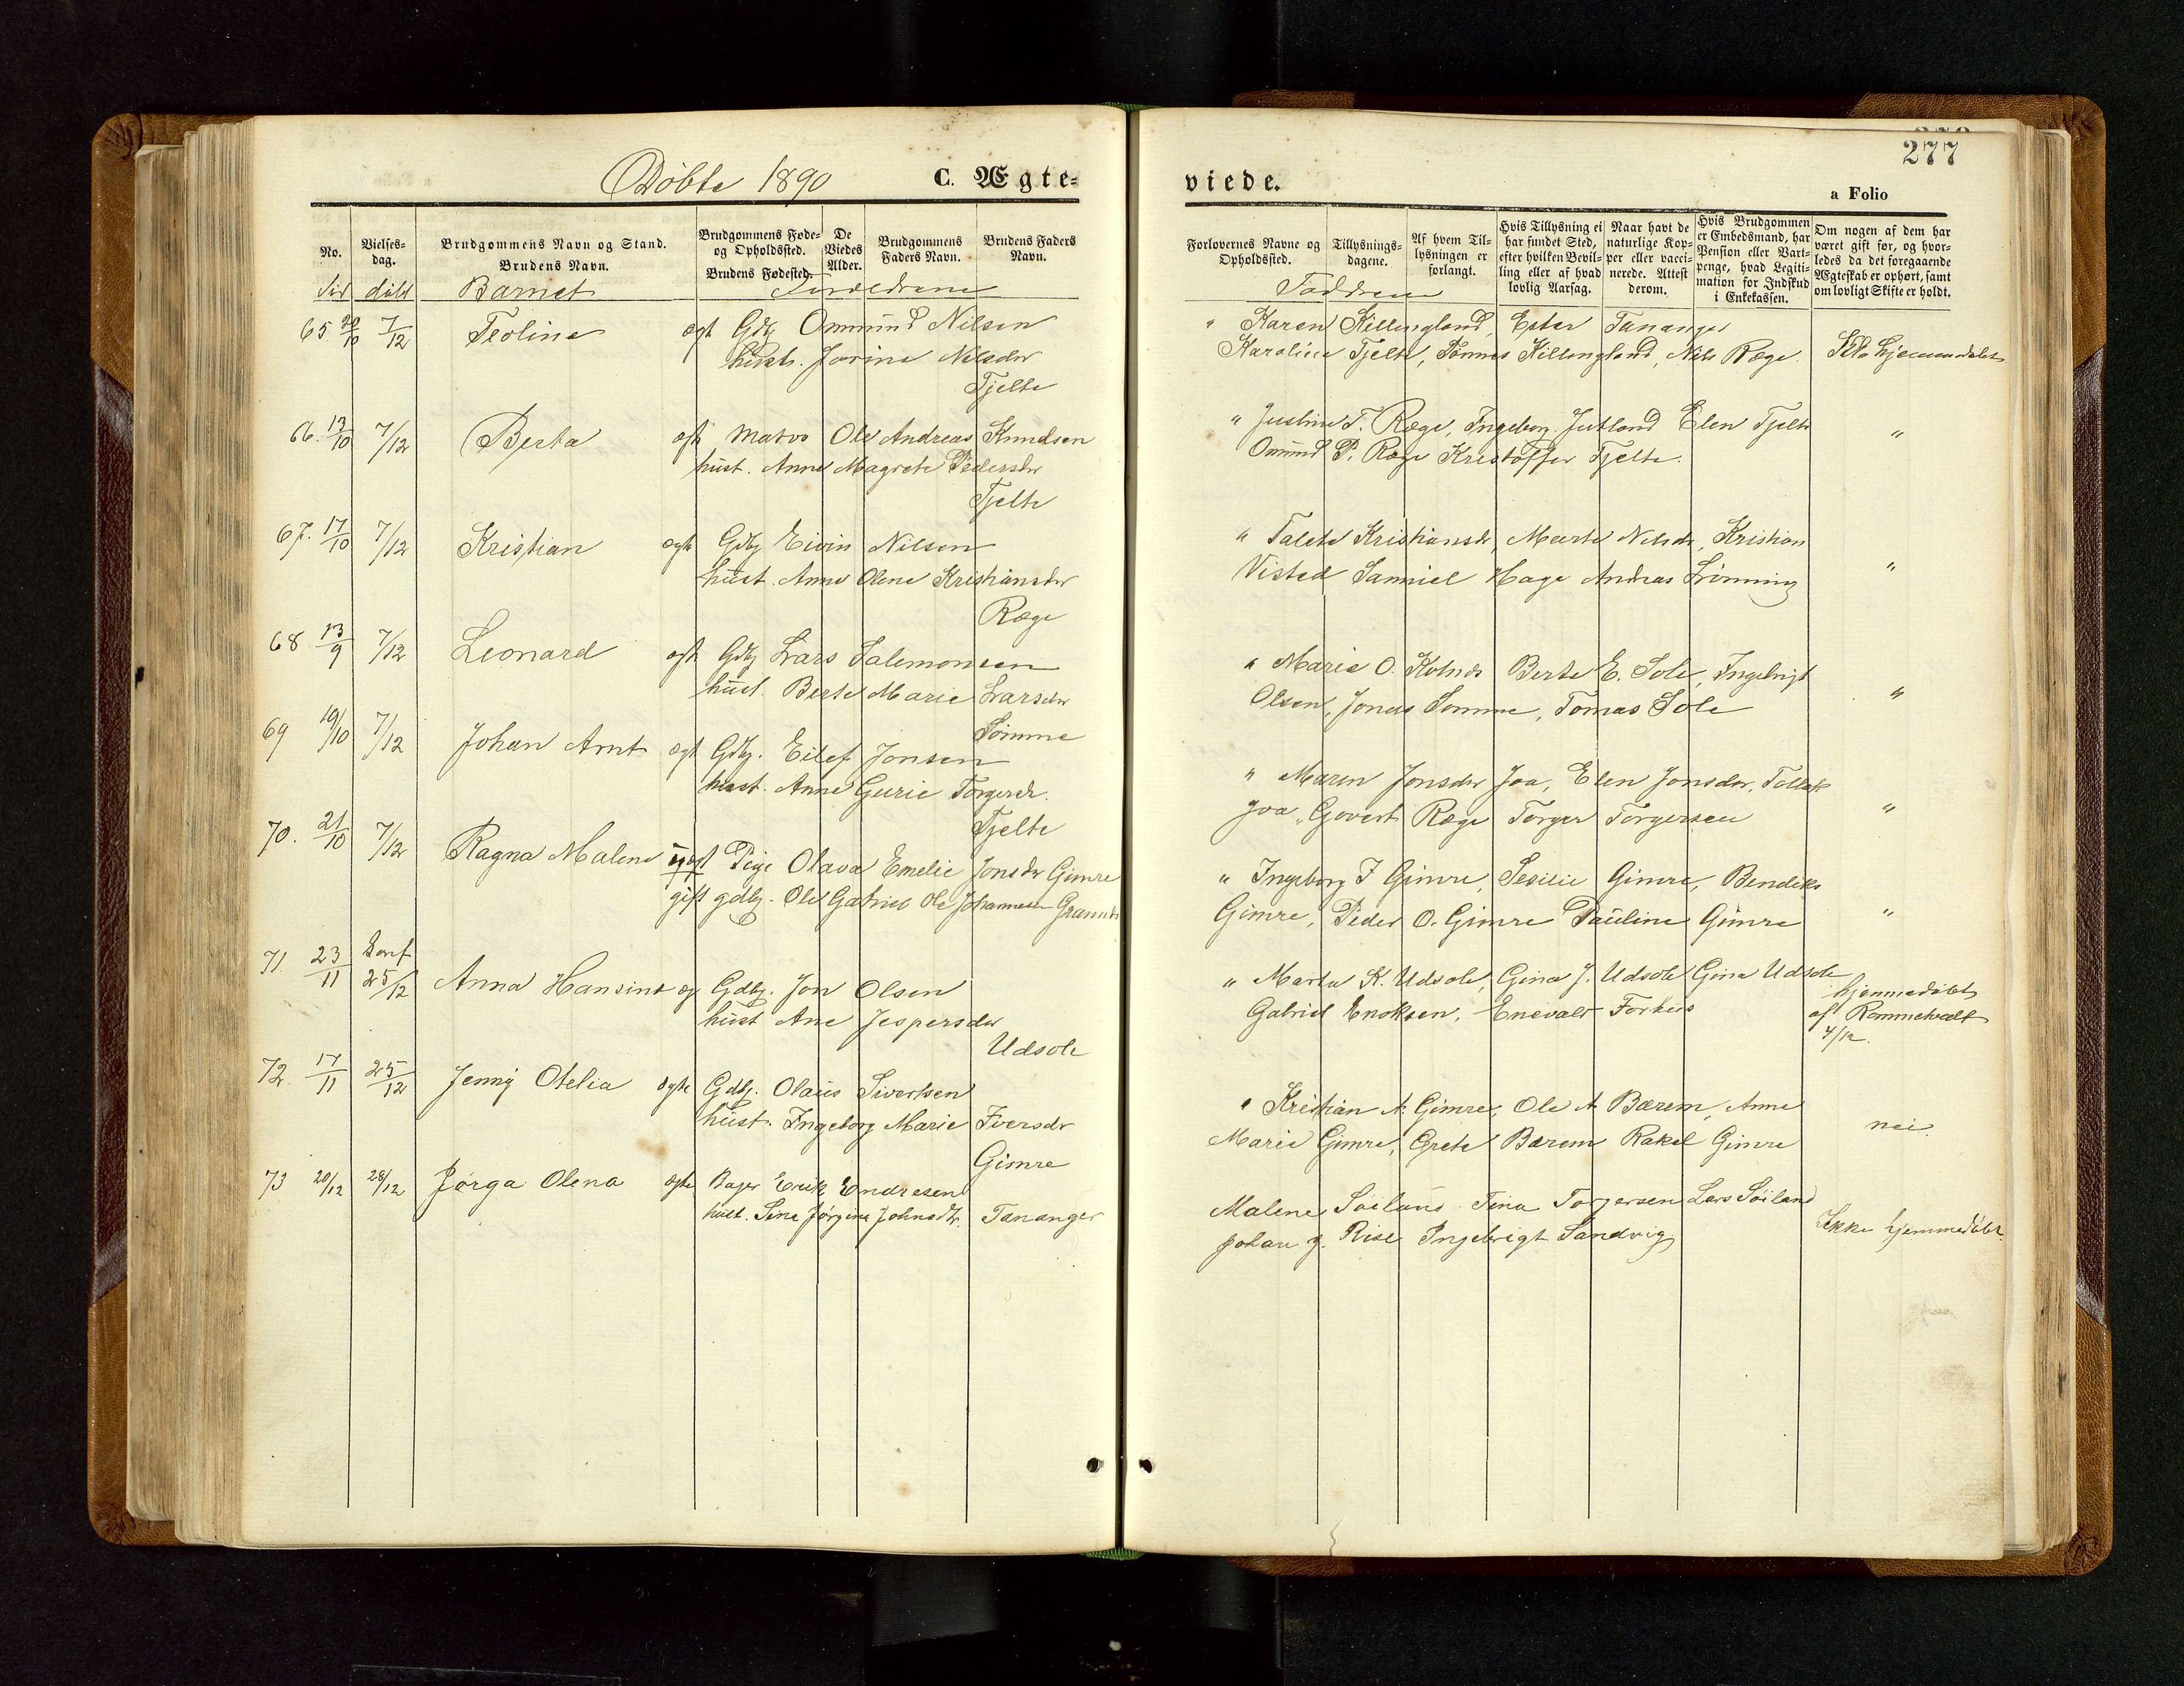 Døbte 1890 C. Ægte-
No.
Vielses-
dag.
Brudgommens Navn og Stand.
Brudens Navn.
Brudgommens Føde-
og Opholdssted.
Brudens Fødested.
De
Viedes
Alder.
Brudgommens
Faders Navn.
Brudens Faders
Navn.
død døbt Barnet Foreldrene
65. 7/12 Teoline ægt Gdbj Ommund Nilsen
hustr. Jorine Nilsdtr
Tjelte
66. 13/10 7/12 Berta ægt Matros Ole Andreas Knudsen
hust. Anne Magrete Pedersdtr
Tjelte
67. 17/10 7/12 Kristian ægte Gdbj Eivin Nilsen
hust. Anne Olene Kristiansdtr
Ræge
68 13/9 7/12 Leonard ægt Gdbj Lars Salemonsen
hust. Berte Marie Larsdtr
Sømme
69 19/10 7/12 Johan Arnt ægt Gdbj. Eilef Jonsen
hust. Anne Gurie Torgersdr.
Tjelte
70. 21/10 7/12 Ragna Malene uægt Pige Olava Emelie Jonsdtr Gimre
gift gdbj. Ole Gabriel Ole Johannesen
71. 23/11 25/12 Anna Hansine æg Gdbj. Jon Olsen
hust Ane Jespersdtr
Udsole
72. 17/11 25/12 Jenny Otelia ægte Gdbj. Olaus Sivertsen
hust. Ingeborg Marie Iversdr
Gimre
73 20/12 28/12 Jørga Olena ægte Bager Erik Endresen
hust. Sine Jørgine Johnsdtr. Tananger
277
viede.
a Folio
Forlovernes Navne og
Opholdssted.
Tillysnings-
dagene.
Af hvem Til-
lysningen er
forlangt.
Hvis Tillysning ei
har fundet Sted,
efter hvilken Bevil-
ling eller af hvad
lovlig Aarsag.
Naar havt de
naturlige Kop-
per eller vacci-
nerede. Attest
derom.
Hvis Brudgommen
er Embedsmand, har
Pension eller Vart-
penge, hvad Legiti-
mation for Indskud
i Enkekassen.
Om nogen af dem har
været gift før, og hvor-
ledes da det foregaaende
Ægteskab er ophørt, samt
om lovligt Skifte er holdt.
Faddrene
" Karen Killingland, Ester Tananger
Karoline Tjelte, Tønnes Killingland, Nils Ræge. hjemmedøbt
" Justine T. Ræge, Ingeborg Jutland Elen Tjelte
Omund P. Ræge Kristoffer Tjelte. "
" Talete Kristiansdr, Marte Nilsdr, Kristian
Visted Samuel Hage Andreas Lønning "
" Marie O. Kolnes Berte E. Sole, Ingebrigt
Olsen, Jonas Sømme, Tomas Sole "
" Maren Jonsdtr Joa, Elen Jonsdtr, Tollak
Joa, Govert Ræge Torger Torgersen "
" Ingeborg J Gimre, Sesilie Gimre, Bendiks
Gimre, Peder O. Gimre Pauline Gimre "
" Marta K. Udsole, Gina J. Udsole Gina Udsole
Gabriel Enoksen, Enevald Forhus
hjemmedøbt
af Rommetvedt
4/12.
" Kristian A. Gimre, Ole A. Bærem, Anne
Marie Gimre, Grete Bærem Rakel Gimre nei.
Malene Soiland Tina Torgersen Lars Soiland
Johan J. Rise Ingebrigt Sandvig Ikke hjemmedøbt.